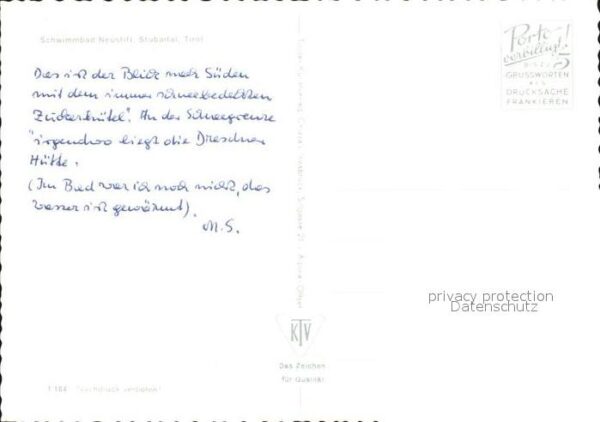 Schwimmbad Neustift, Stubaital, Tirol
Das ist der Blick nach Süden
mit dem immer schneebedeckten
Zuckerhütel". An der Schneegrenze
"irgendwo liegt die Dresdner
Hütte.
(Im Bad war ich noch nicht, das
Wasser ist gewärmt).
M.S.
Porto
verbilligt!
BIS ZU 5
GRUSSWORTEN
ALS
DRUCKSACHE
FRANKIEREN
privacy protection
Datenschutz
KTV
Das Zeichen
für Qualität
Nachdruck verboten!